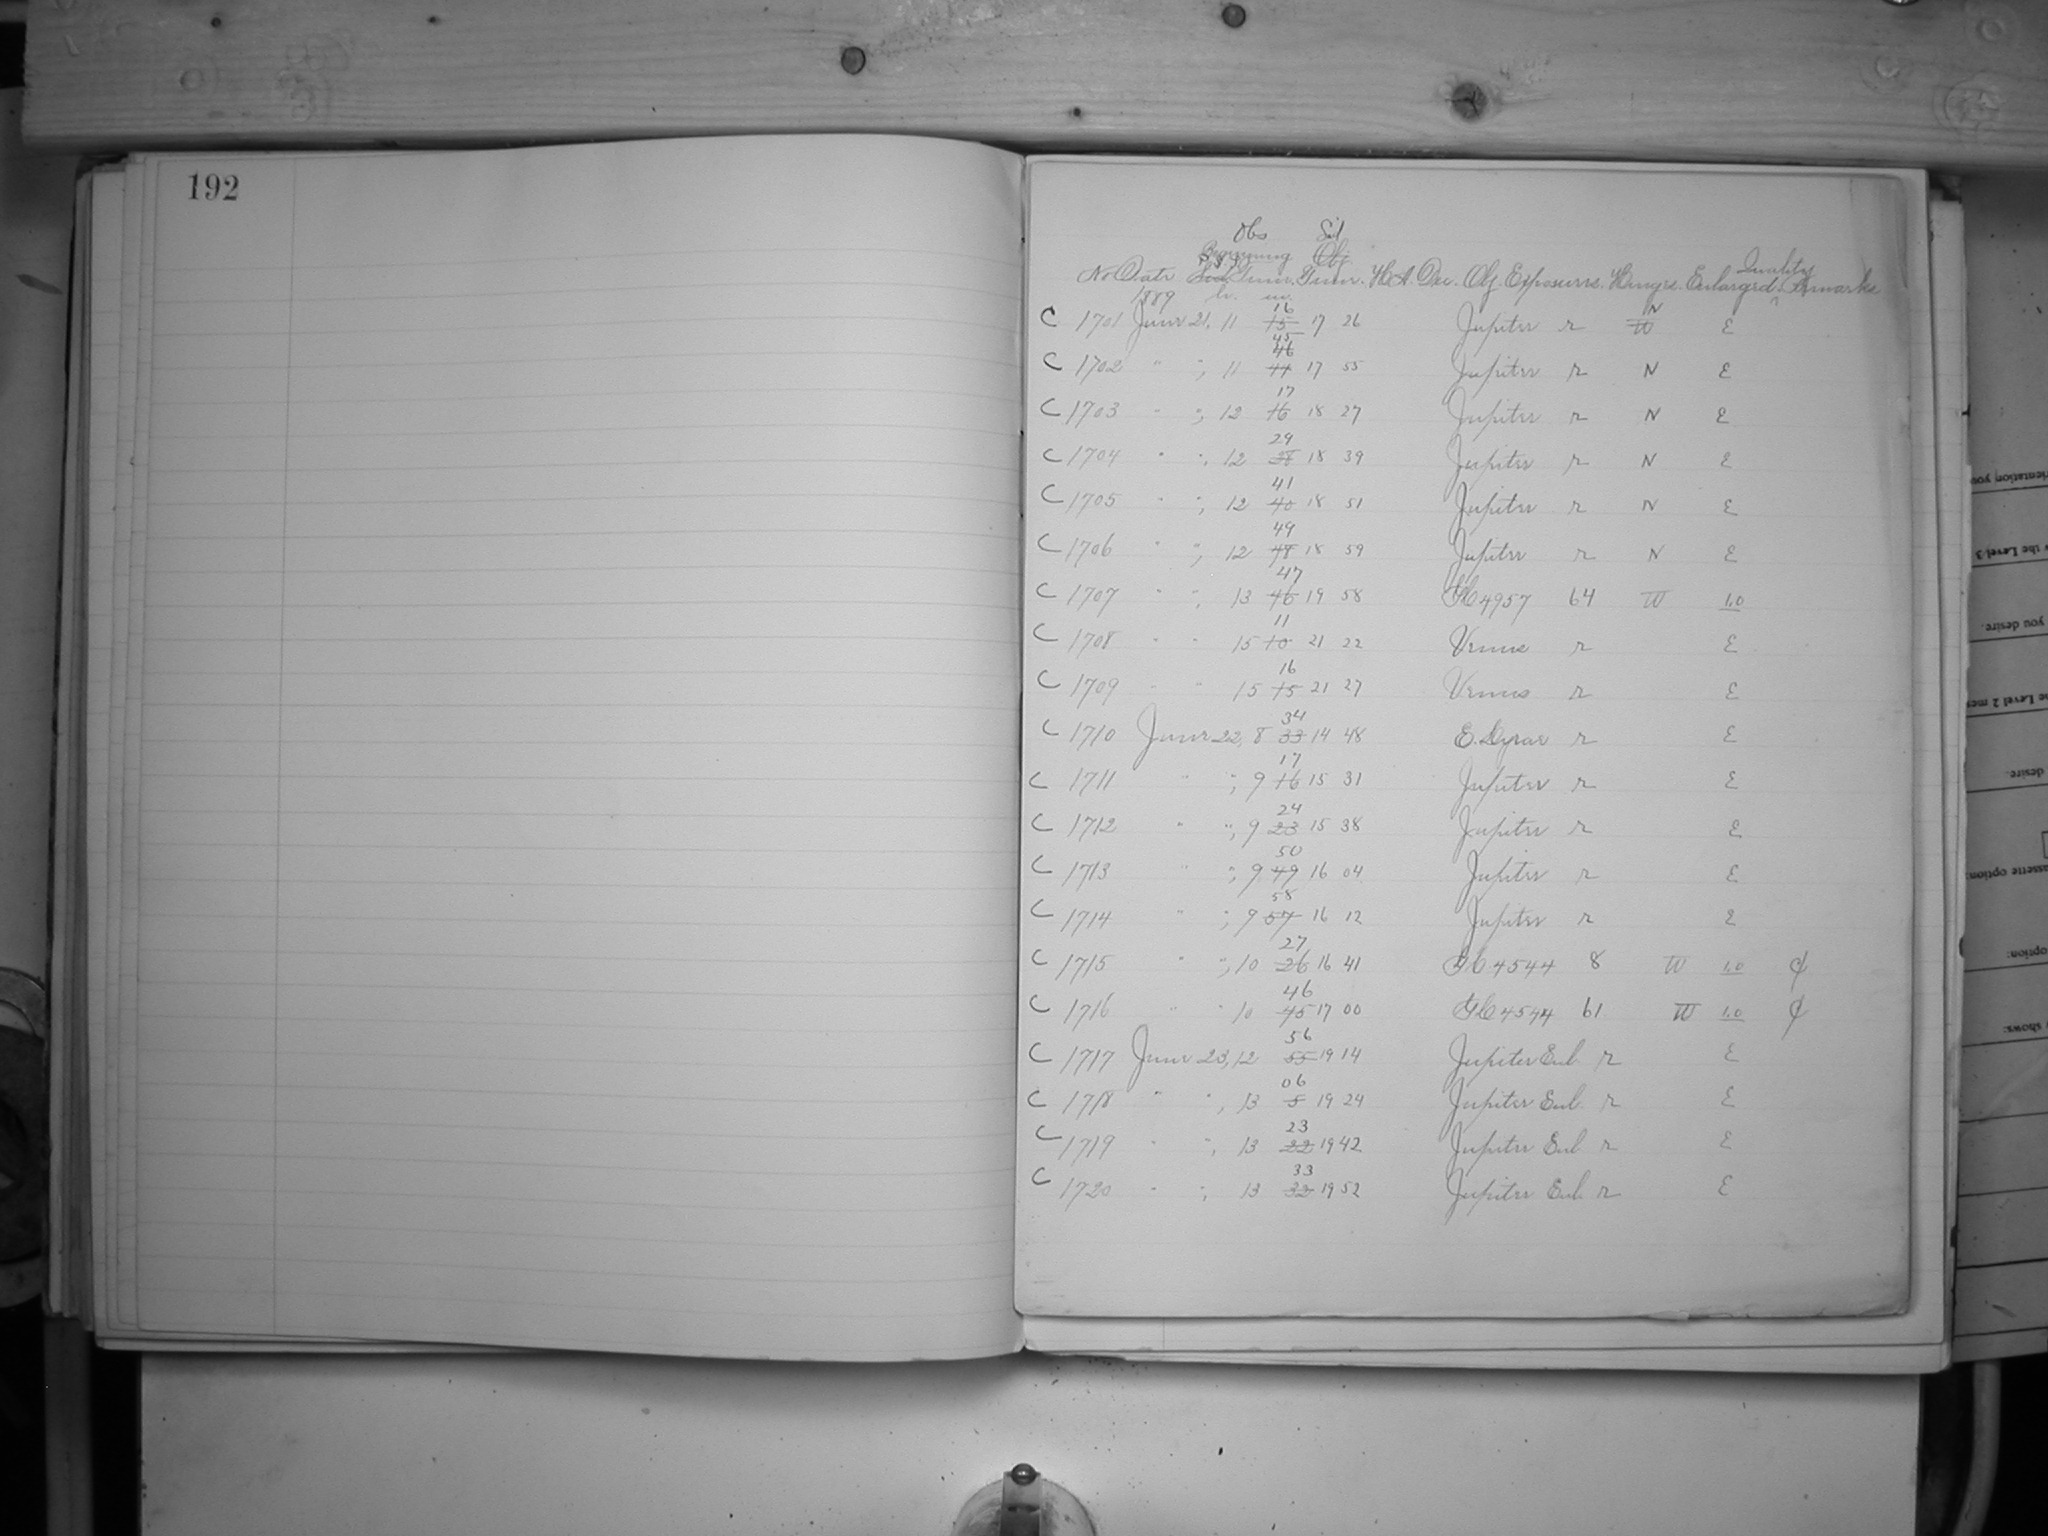 192
Obs Sid
Beginning Obj.
No Date Sid Time. Time. H.A. Dec. Obj. Exposures. Hinges. Enlarged. Quality Remarks
1889 h. m.
16 N
C 1701 June 21, 11 15 17 26 Jupiter r W E
45
46
C 1702 " ", 11 44 17 55 Jupiter r N E
17
C 1703 " ", 12 16 18 27 Jupiter r N E
29
C 1704 " ", 12 28 18 39 Jupiter r N E
41
C 1705 " ", 12 40 18 51 Jupiter r N E
49
C 1706 " ", 12 48 18 59 Jupiter r N E
47
C 1707 " ", 13 46 19 58 GC 4957 64 W 1.0
11
C 1708 " " 15 10 21 22 Venus r E
16
C 1709 " " 15 15 21 27 Venus r E
34
C 1710 June 22, 8 33 14 48 E. Lyrae r E
17
C 1711 " ", 9 16 15 31 Jupiter r E
24
C 1712 " ", 9 23 15 38 Jupiter r E
50
C 1713 " ", 9 49 16 04 Jupiter r E
58
C 1714 " ", 9 57 16 12 Jupiter r E
27
C 1715 " ", 10 26 16 41 GC 4544 8 W 1.0 ¢
46
C 1716 " " 10 45 17 00 GC 4544 61 W 1.0 ¢
56
C 1717 June 23, 12 55 19 14 Jupiter Enl. r E
06
C 1718 " ", 13 5 19 24 Jupiter Enl. r E
23
C 1719 " ", 13 22 19 42 Jupiter Enl r E
33
C 1720 " ", 13 32 19 52 Jupiter Enl. r E
rientation, you
the Level 3
you desire.
e Level 2 mes
desire.
assette option:
option:
shows: